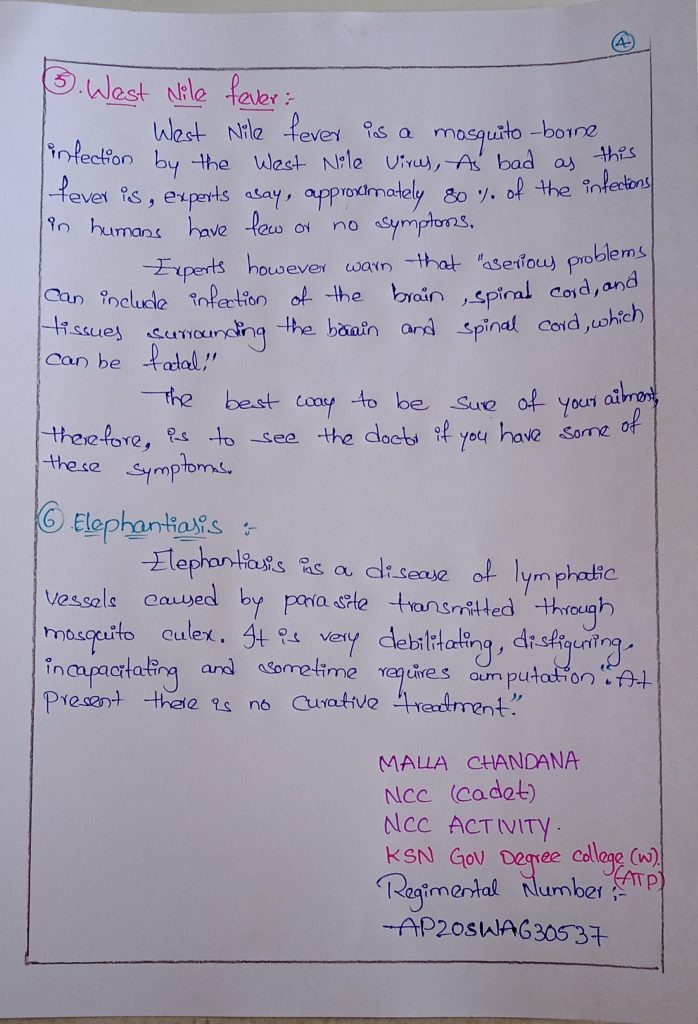 4
5. West Nile fever :-
West Nile fever is a mosquito-borne
infection by the West Nile Virus, As bad as this
fever is, experts say, approximately 80 %. of the infections
in humans have few or no symptoms.
Experts however warn that "serious problems
can include infection of the brain, spinal cord, and
tissues surrounding the brain and spinal cord, which
can be fatal."
The best way to be sure of your ailment,
therefore, is to see the doctor if you have some of
these symptoms.
6. Elephantiasis :-
Elephantiasis is a disease of lymphatic
vessels caused by parasite transmitted through
mosquito culex. It is very debilitating, disfiguring,
incapacitating and sometime requires amputation". At
present there is no curative treatment."
MALLA CHANDANA
NCC (cadet)
NCC ACTIVITY.
KSN Gov Degree college (W).
(ATP)
Regimental Number :-
AP20SWAG30537